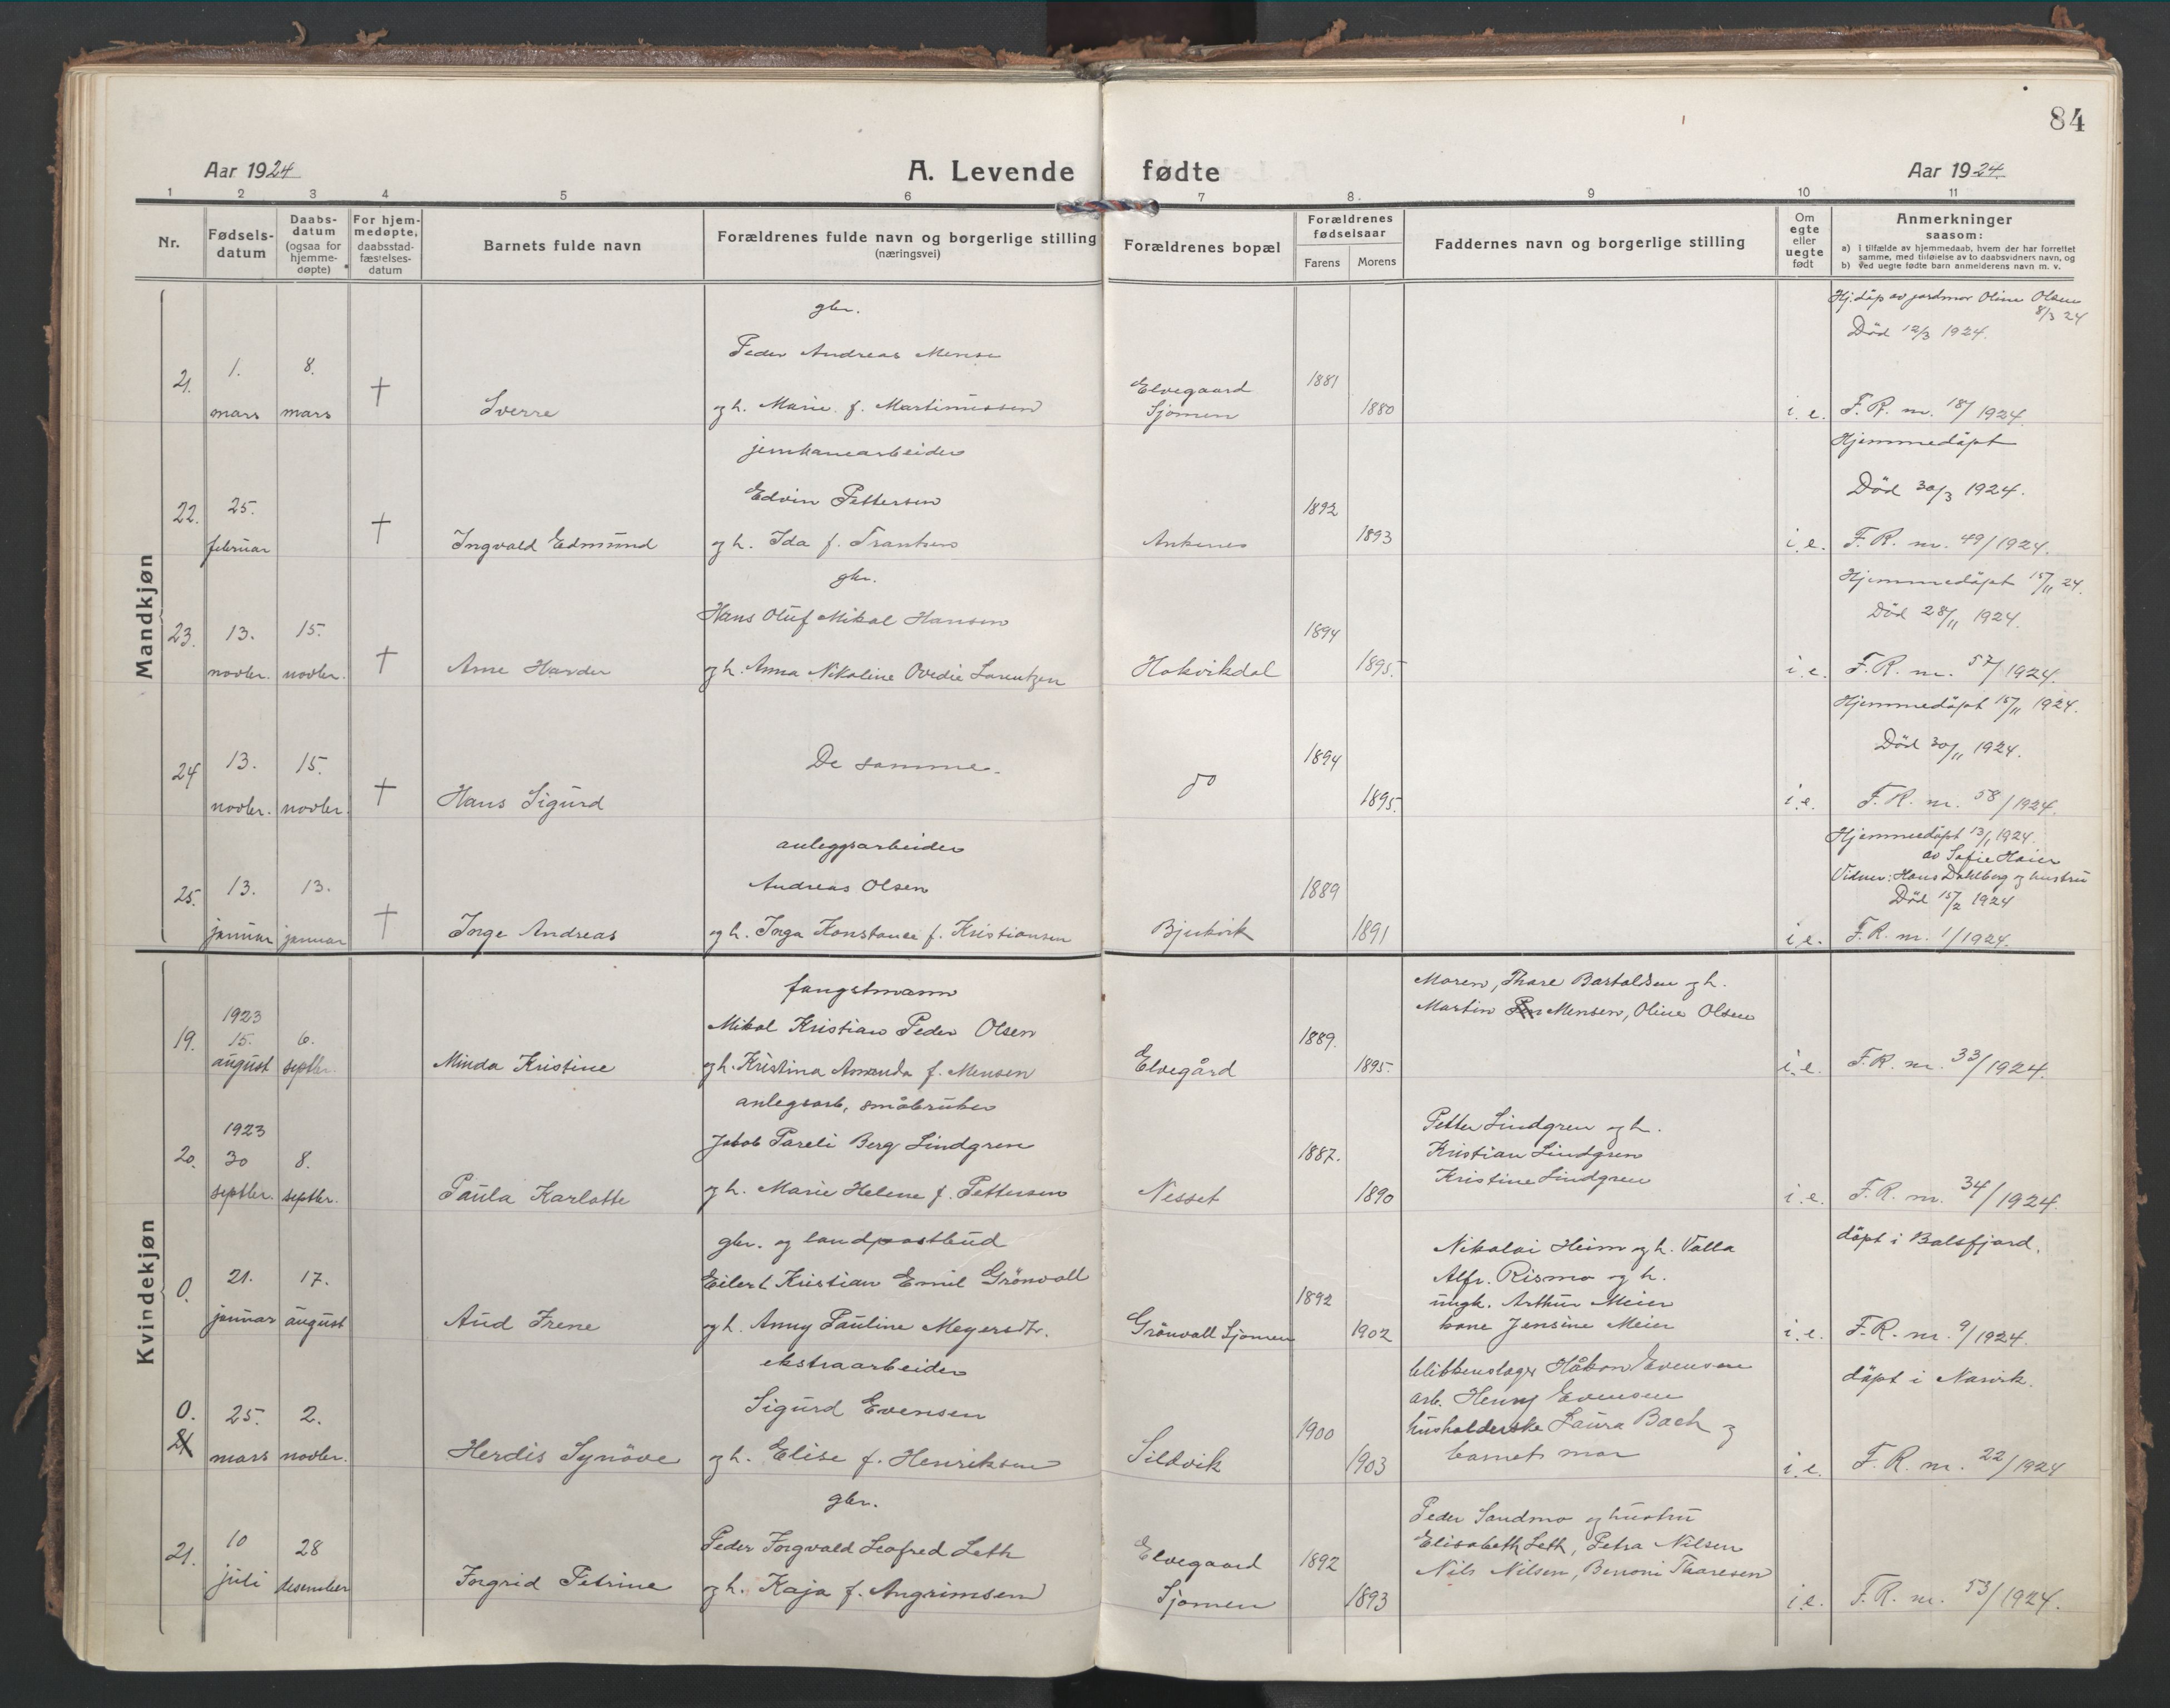 84
Aar 1924
A. Levende fødte
Aar 1924.
1 2 3 4 5 6 7 8. 9 10 11
Nr.
Fødsels-
datum
Daabs-
datum
(ogsaa for
hjemme-
døpte)
For hjem-
medøpte,
daabsstad-
fæstelses-
datum
Barnets fulde navn
Forældrenes fulde navn og borgerlige stilling
(næringsvei)
Forældrenes bopæl
Forældrenes
fødselsaar
Farens Morens
Faddernes navn og borgerlige stilling
Om
egte
eller
uegte
født
Anmerkninger
saasom:
a) i tilfælde av hjemmedaab, hvem der har forrettet
samme, med tilføielse av to daabsvidners navn, og
b) ved uegte fødte barn anmelderens navn m. v.
Mandkjøn
gbr.
Hj.døp av jordmor Oline Olsen
8/3 24
Død 12/3 1924.
Peder Andreas Mensen
21. 1. 8. † Elvegaard 1881
mars mars Sverre og h. Marie f. Martinussen Sjomen 1880 i. e. F. R. nr. 18/1924.
jernbanearbeider
Hjemmedøpt
Edvin Pettersen
Død 30/3 1924.
22. 25. † 1892
februar Ingvald Edmund og h. Ida f. Frantsen Ankenes 1893 i. e. F. R. nr. 49/1924.
gbr.
Hjemmedøpt 15/11 24.
Hans Oluf Mikal Hansen
Død 28/11 1924.
23. 13. 15. † 1894
novbr. novbr. Arne Harder og h. Anna Nikoline Ovedie Lorentzen Hokvikdal 1895. i. e. F. R. nr. 57/1924.
Hjemmedøpt 15/11 1924.
Død 30/11 1924.
24 13. 15. † De samme. do 1894
novbr. novbr. Hans Sigurd 1895. i. e. F. R. nr. 58/1924.
anleggsarbeider
Hjemmedøpt 13/1 1924.
av Sofie Haier
Vidner: Hans Dahlberg og hustru
Død 15/2 1924
25. 13. 13. † Andreas Olsen 1889
januar januar Inge Andreas og h. Inga Konstance f. Kristiansen Bjerkvik 1891 i. e. F. R. nr. 1/1924.
Kvindekjøn
fangstmann
Moren, Thare Bartoldsen og h.
Martin Mensen, Oline Olsen
19. 1923
15. 6. Mikal Kristian Peder Olsen 1889.
august septbr. Minda Kristine og h. Kristina Amanda f. Mensen Elvegård 1895. i. e. F. R. nr. 33/1924.
anlegsarb, småbruker
20. 1923
30 8. Jakob Pareli Berg Lindgren 1887.
Petter Lindgren og h.
Kristian Lindgren
Kristine Lindgren
septbr. septbr. Paula Karlotte og h. Marie Helene f. Pettersen Nesset 1890 i. e. F. R. nr. 34/1924.
gbr. og landpostbud
døpt i Balsfjord.
0. 21. 17. Eilert Kristian Emil Grönvoll 1892
Nikolai Heim og h. Valla
Alfr. Rismo og h.
ungk. Arthur Meier
kone Jensine Meier
januar august Aud Irene og h. Anny Pauline Meyersdtr. Grönvoll Sjomen 1902 i. e. F. R. nr. 9/1924.
ekstraarbeider
døpt i Narvik.
0. 21 25. 2. Sigurd Evensen 1900
blikkenslager Håkon Evensen
arb. Henry Evensen
husholderske Laura Bach og
barnets mor
mars novbr. Herdis Synöve og h. Elise f. Henriksen Sildvik 1903 i. e. F. R. nr. 22/1924
gbr.
21. 10 28 Peder Ingvald Leafred Leth Elvegaard 1892
Peder Sandmo og hustru
Elisabeth Leth, Petra Nilsen
Nils Nilsen, Benoni Tharesen
juli desember Ingrid Petrine og h. Kaja f. Angrimsen Sjomen 1893 i. e. F. R. nr. 53/1924.